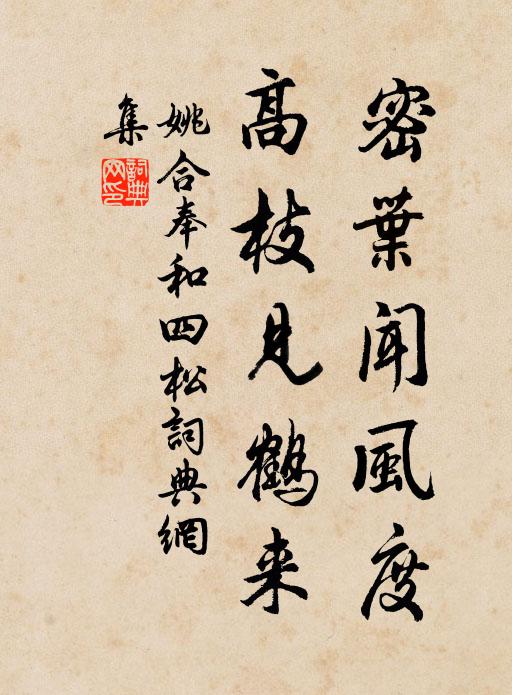 密葉聞風度
高枝見鶴来
姚合奉和四松詞典網
集
詞典网印